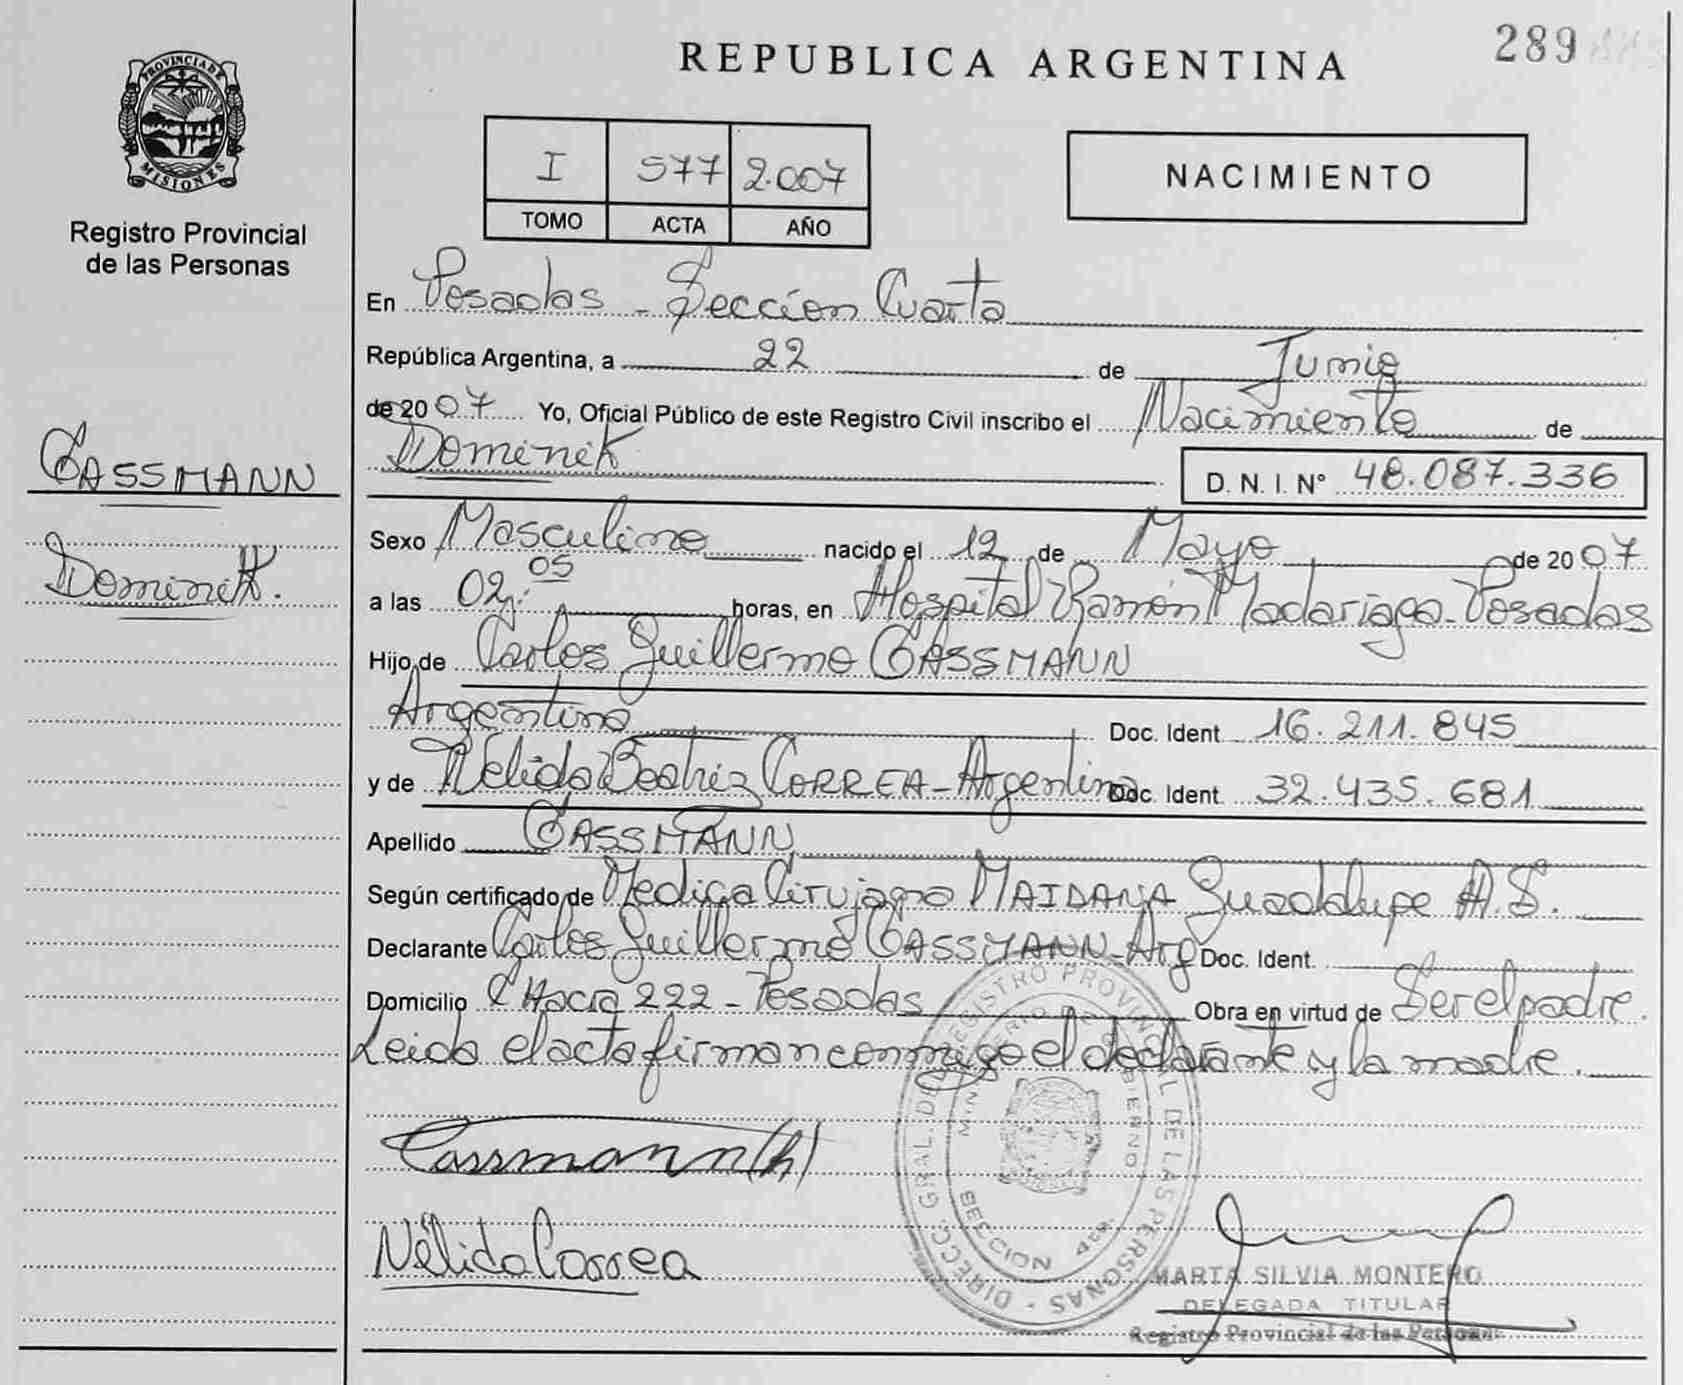 289
REPUBLICA ARGENTINA
PROVINCIA DE MISIONES
Registro Provincial
de las Personas
I 577 2.007
TOMO ACTA AÑO
NACIMIENTO
CASSMANN
Dominik.
En Posadas - Sección Cuarta
República Argentina, a 22 de Junio
de 2007 Yo, Oficial Público de este Registro Civil inscribo el Nacimiento de
Dominik D. N. I. N° 48.087.336
Sexo Masculino nacido el 12 de Mayo de 2007
a las 02,05 horas, en Hospital Ramón Madariaga - Posadas
Hijo de Carlos Guillermo CASSMANN
Argentino Doc. Ident 16.211.845
y de Nélida Beatriz CORREA - Argentina Doc. Ident 32.435.681
Apellido CASSMANN
Según certificado de Medica Cirujano MAIDANA Guadalupe A. S.
Declarante Carlos Guillermo CASSMANN - Arg Doc. Ident.
Domicilio Chacra 222 - Posadas Obra en virtud de Ser el padre.
Leida el acta firman conmigo el declarante y la madre.
Cassmann (h)
Nélida Correa
DIRECC. GRAL. DEL REGISTRO PROVINCIAL DE LAS PERSONAS
MINISTERIO DE GOBIERNO
SECCION 4ta.
MARTA SILVIA MONTERO
DELEGADA TITULAR
Registro Provincial de las Personas